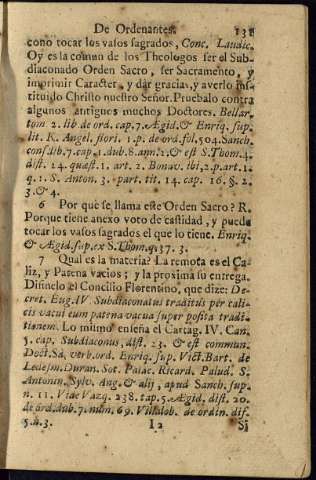 De Ordenantes. 131
cono tocar los vasos sagrados, Conc. Laudic.
Oy es la comun de los Theologos ser el Sub-
diaconado Orden Sacro, ser Sacramento, y
imprimir Caracter, y dar gracia, y averlo ins-
tituido Christo nuestro Señor. Pruebalo contra
algunos antiguos muchos Doctores. Bellar-
tom 2. lib. de ord. cap. 7. Ægid. & Enriq. sup.
lit. R. Angel. flori. 1. p. de ord. fol. 504. Sanch.
cons. lib. 7. cap. 1. dub. 8. nn. 2. & est S. Thom. 4.
dist. 24. quæst. 1. art. 2. Bonav. ibi, 2. p. art. 1.
q. 1. S. Anton. 3. part. tit. 14. cap. 16. §. 2.
3. & 4.
6 Por què se llama este Orden Sacro? R.
Porque tiene anexo voto de castidad, y puede
tocar los vasos sagrados el que lo tiene. Enriq.
& Ægid. sup. ex S. Thom. q. 37. 3.
7 Qual es la materia? La remota es el Ca-
liz, y Patena vacios; y la proxima su entrega.
Difinelo el Concilio Florentino, que dize: De-
cret. Eug. IV. Subdiaconatus traditur per cali-
cis vacui cum patena vacua super posita tradi-
tionem. Lo mismo enseña el Cartag. IV. Can.
5. cap. Subdiaconus, dist. 23. & est commun.
Doct. Sà, verb. ord. Enriq. sup. Vict. Bart. de
Ledesm. Duran. Sot. Palac. Ricard. Palud. S.
Antonin. Sylv. Ang. & alij, apud Sanch. sup.
n. 11. Vide Vazq. 238. tap. 5. Ægid. dist. 20.
de ord. dub. 7. num. 69. Villalob. de ordin. dif.
5. n. 3. I2 Si